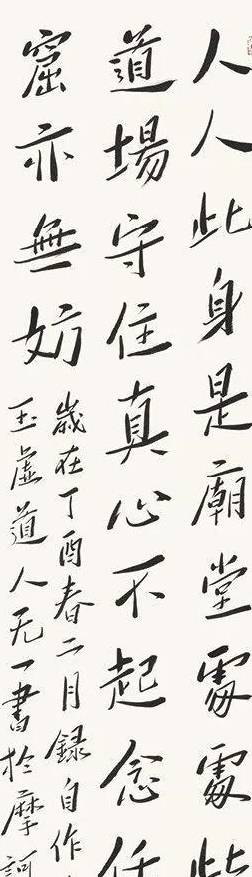 人人此身是廟堂處處此
道場守住真心不起念任
窟亦無妨
歲在丁酉春二月錄自作
玉虛道人無一書於摩訶